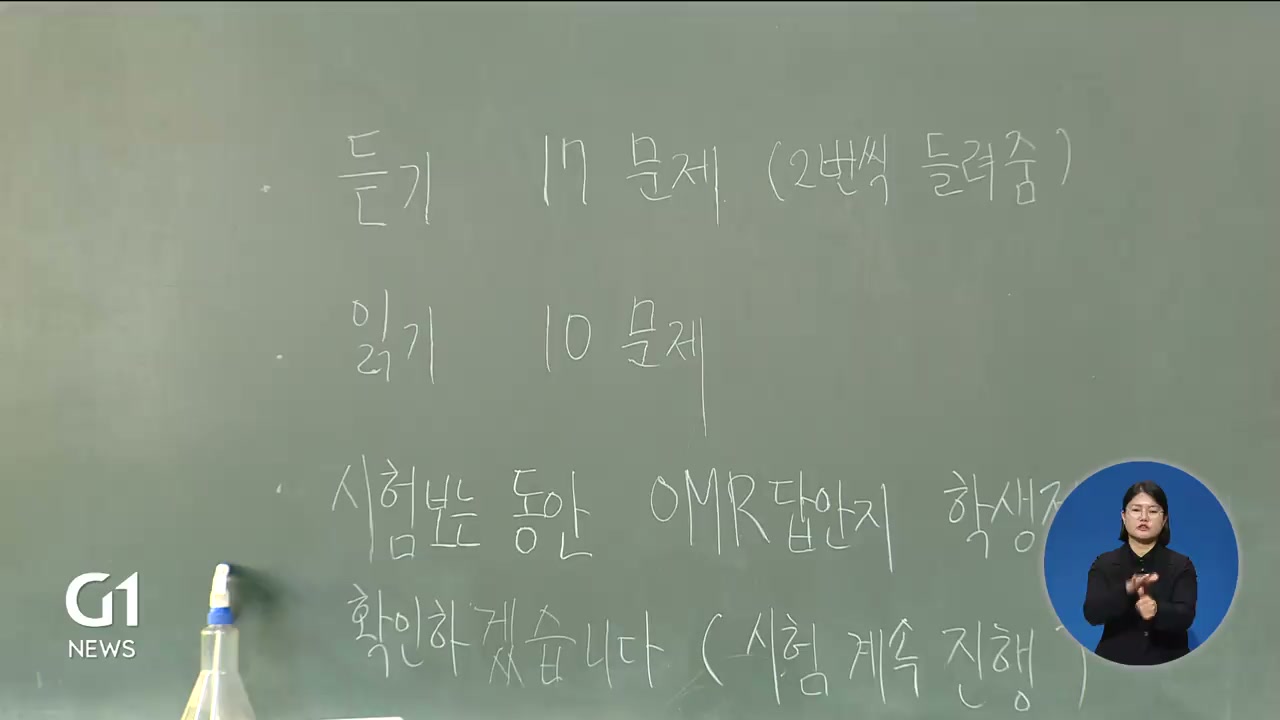 · 듣기 17 문제 (2번씩 들려줌)
· 읽기 10 문제
· 시험보는 동안 OMR답안지 학생
확인하겠습니다 (시험 계속 진행)
G1
NEWS